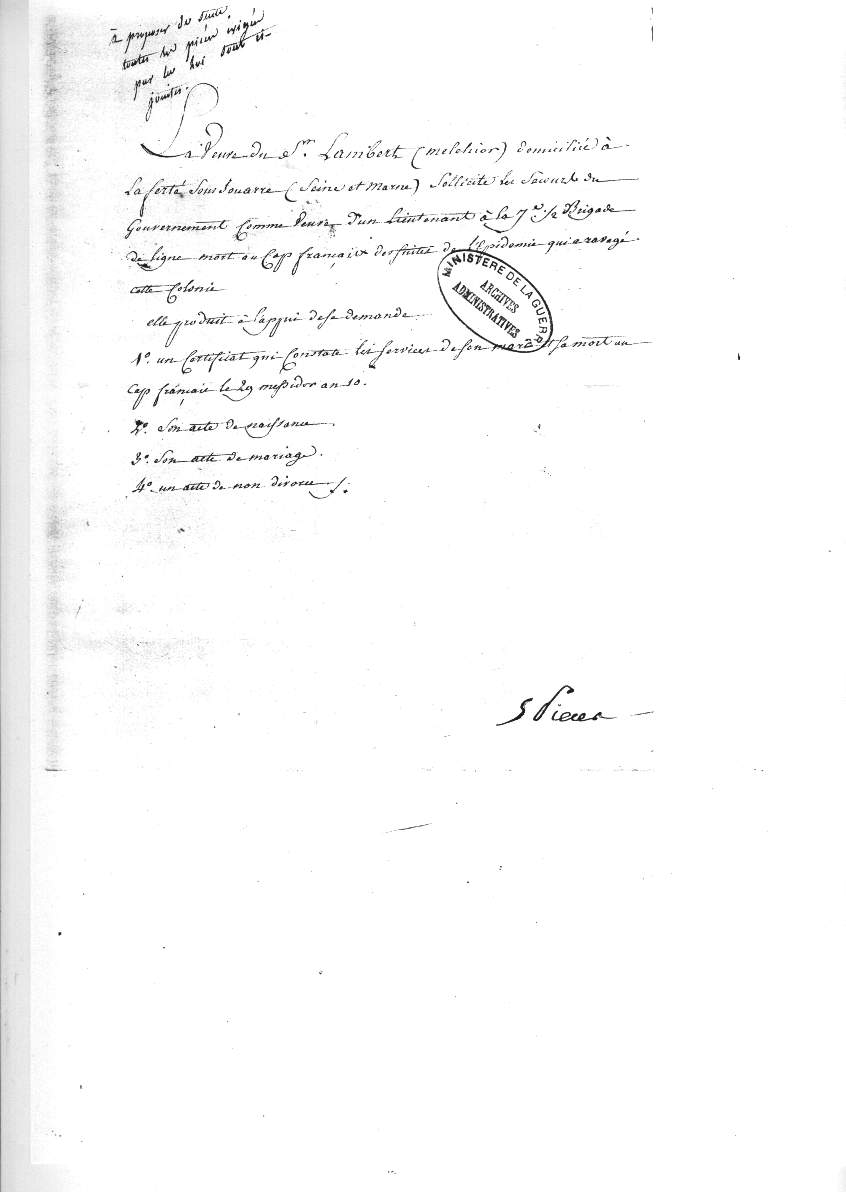 à proposer de suite,
toutes les pièces exigées
par les loi sont ci-
jointes.
La Veuve du Sr. Lambert (melchior) domiciliée à
La ferté Sous Jouarre (Seine et Marne) Sollicite les Secours du
Gouvernement Comme Veuve d'un Lieutenant à la 7e. 1/2 Brigade
de ligne mort au Cap français des suites de l'Epidemie qui a ravagé
cette Colonie
elle produit à l'appui de sa demande
1º. un Certificat qui Constate les services de son mari et sa mort au
Cap français le 29 messidor an 10.
2º. Son acte de naissance.
3º. Son acte de mariage.
4º. un acte de non divorce
MINISTERE DE LA GUERRE
ARCHIVES
ADMINISTRATIVES
5 Pieces